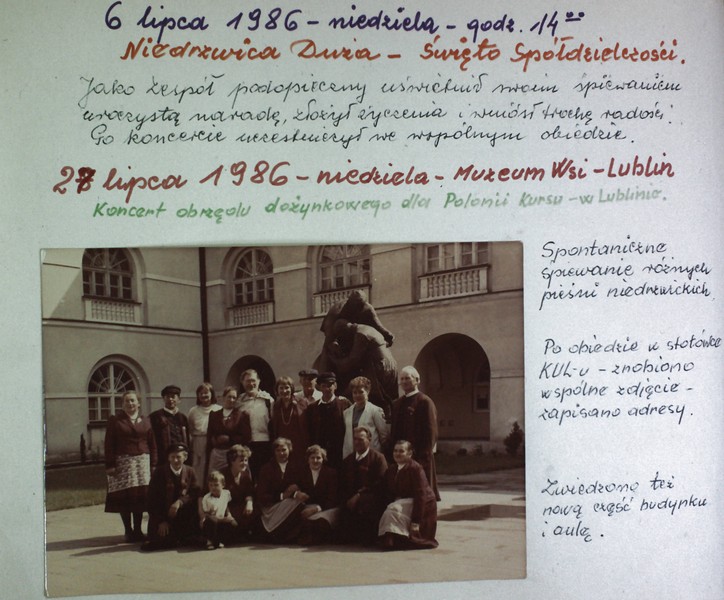 6 lipca 1986 - niedziela - godz. 14⁰⁰
Niedrzwica Duża - Święto Spółdzielczości.
Jako zespół podopieczny uświetnił swoim śpiewaniem
uroczystą naradę, złożył życzenia i wniósł trochę radości.
Po koncercie uczestniczył we wspólnym obiedzie.
27 lipca 1986 - niedziela - Muzeum Wsi - Lublin
Koncert obrzędu dożynkowego dla Polonii Kursu - w Lublinie.
Spontaniczne
śpiewanie różnych
pieśni niedrzwickich.
Po obiedzie w stołówce
KUL-u - znobiono
wspólne zdjęcie -
zapisano adresy.
Zwiedzono też
nową część budynku
i aulę.